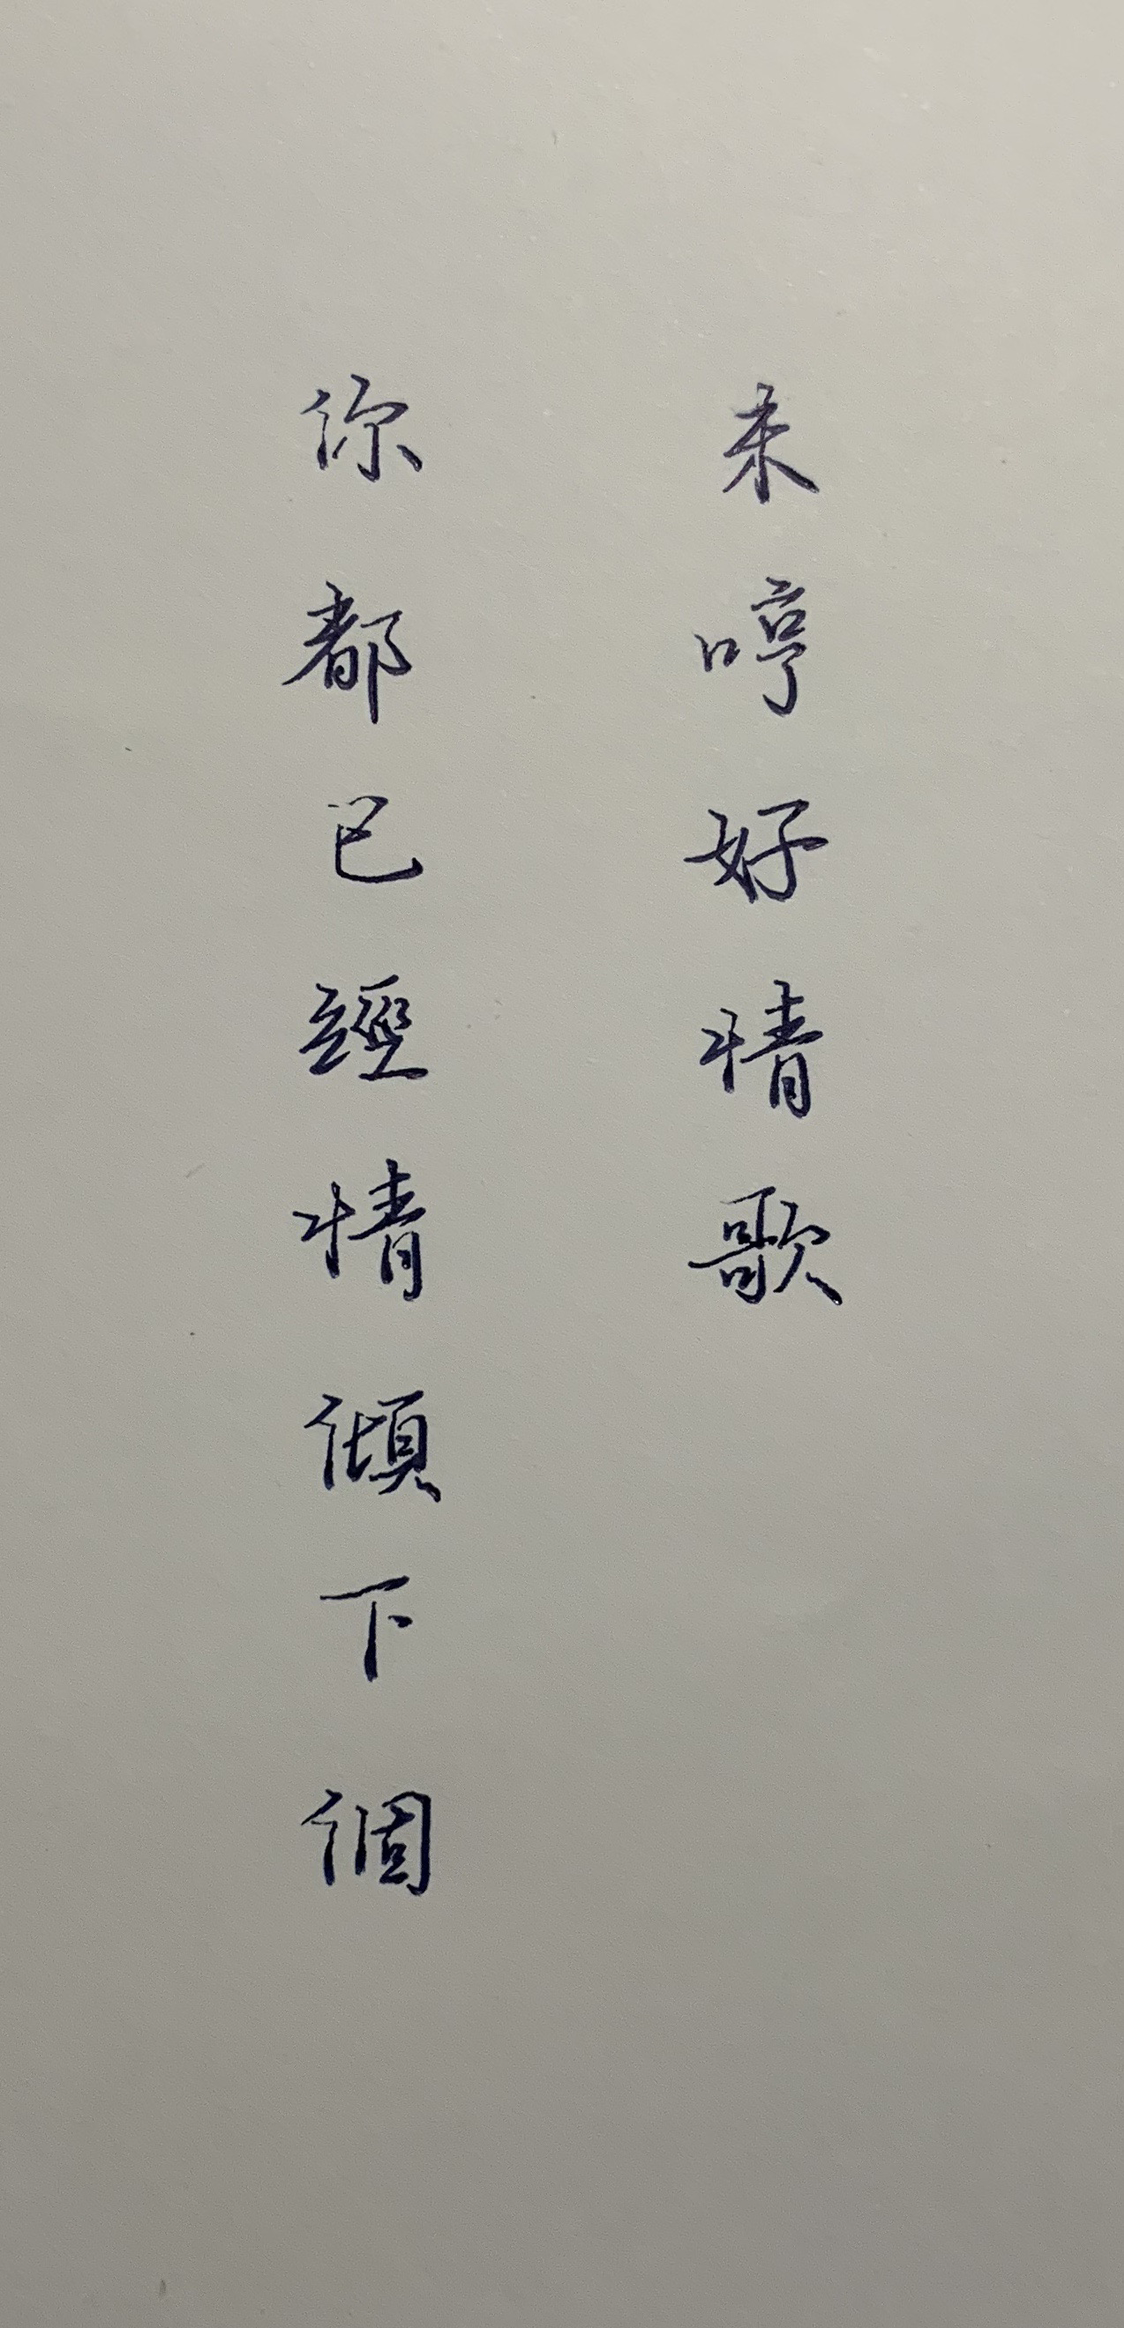 未哼好情歌
你都已經情傾下個